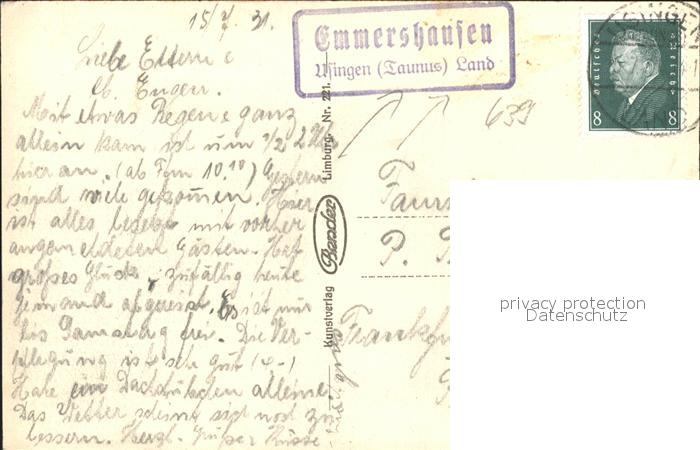 15/7 31.
Emmershausen
Usingen (Taunus) Land
Deutsches Reich
8 8
USINGEN
Liebe Eltern &
lb. Eugen.
639
Mit etwas Regen & ganz
allein kam ich um 1/2 2 Uhr
hier an. (ab Ffm 10.10) Gestern
sind viele gekommen. Hier
ist alles besetzt mit vorher
angemeldeten Gästen. Hat
großes Glück, zufällig heute
jemand abgereist. Es ist nur
bis Samstag frei. Die Ver-
pflegung ist sehr gut (4.-)
Habe ein Dachstübchen alleine.
Das Wetter scheint sich noch zu
bessern. Herzl. Grüße & Küsse
Kunstverlag Bender Limburg. Nr. 221.
Fam
P.
Frankfu
privacy protection
Datenschutz